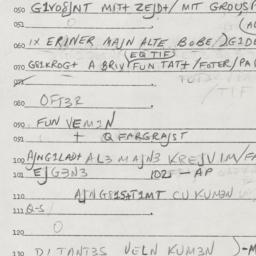 050 G1VOSJNT MIT+ ZEJD+/ MIT GROUS
051
060 IX ERINER MAJN ALTE BOBE/
(EQ TIF)
070 GE1KROG+ A BRIV FUN TAT+/FOTER/PA
080 OFT3R
090 FUN VEM3N
091 + Q FARGRAJST
100 AJNG1LAD+ AL3 MAJN3 KREJVIM/FA
101 EJG3N3 102/ - AP
110 AJNGS1S+T1MT CU KUM3N
111 Q-S
120 0
130 DI TANT3S VELN KUM3N )-M